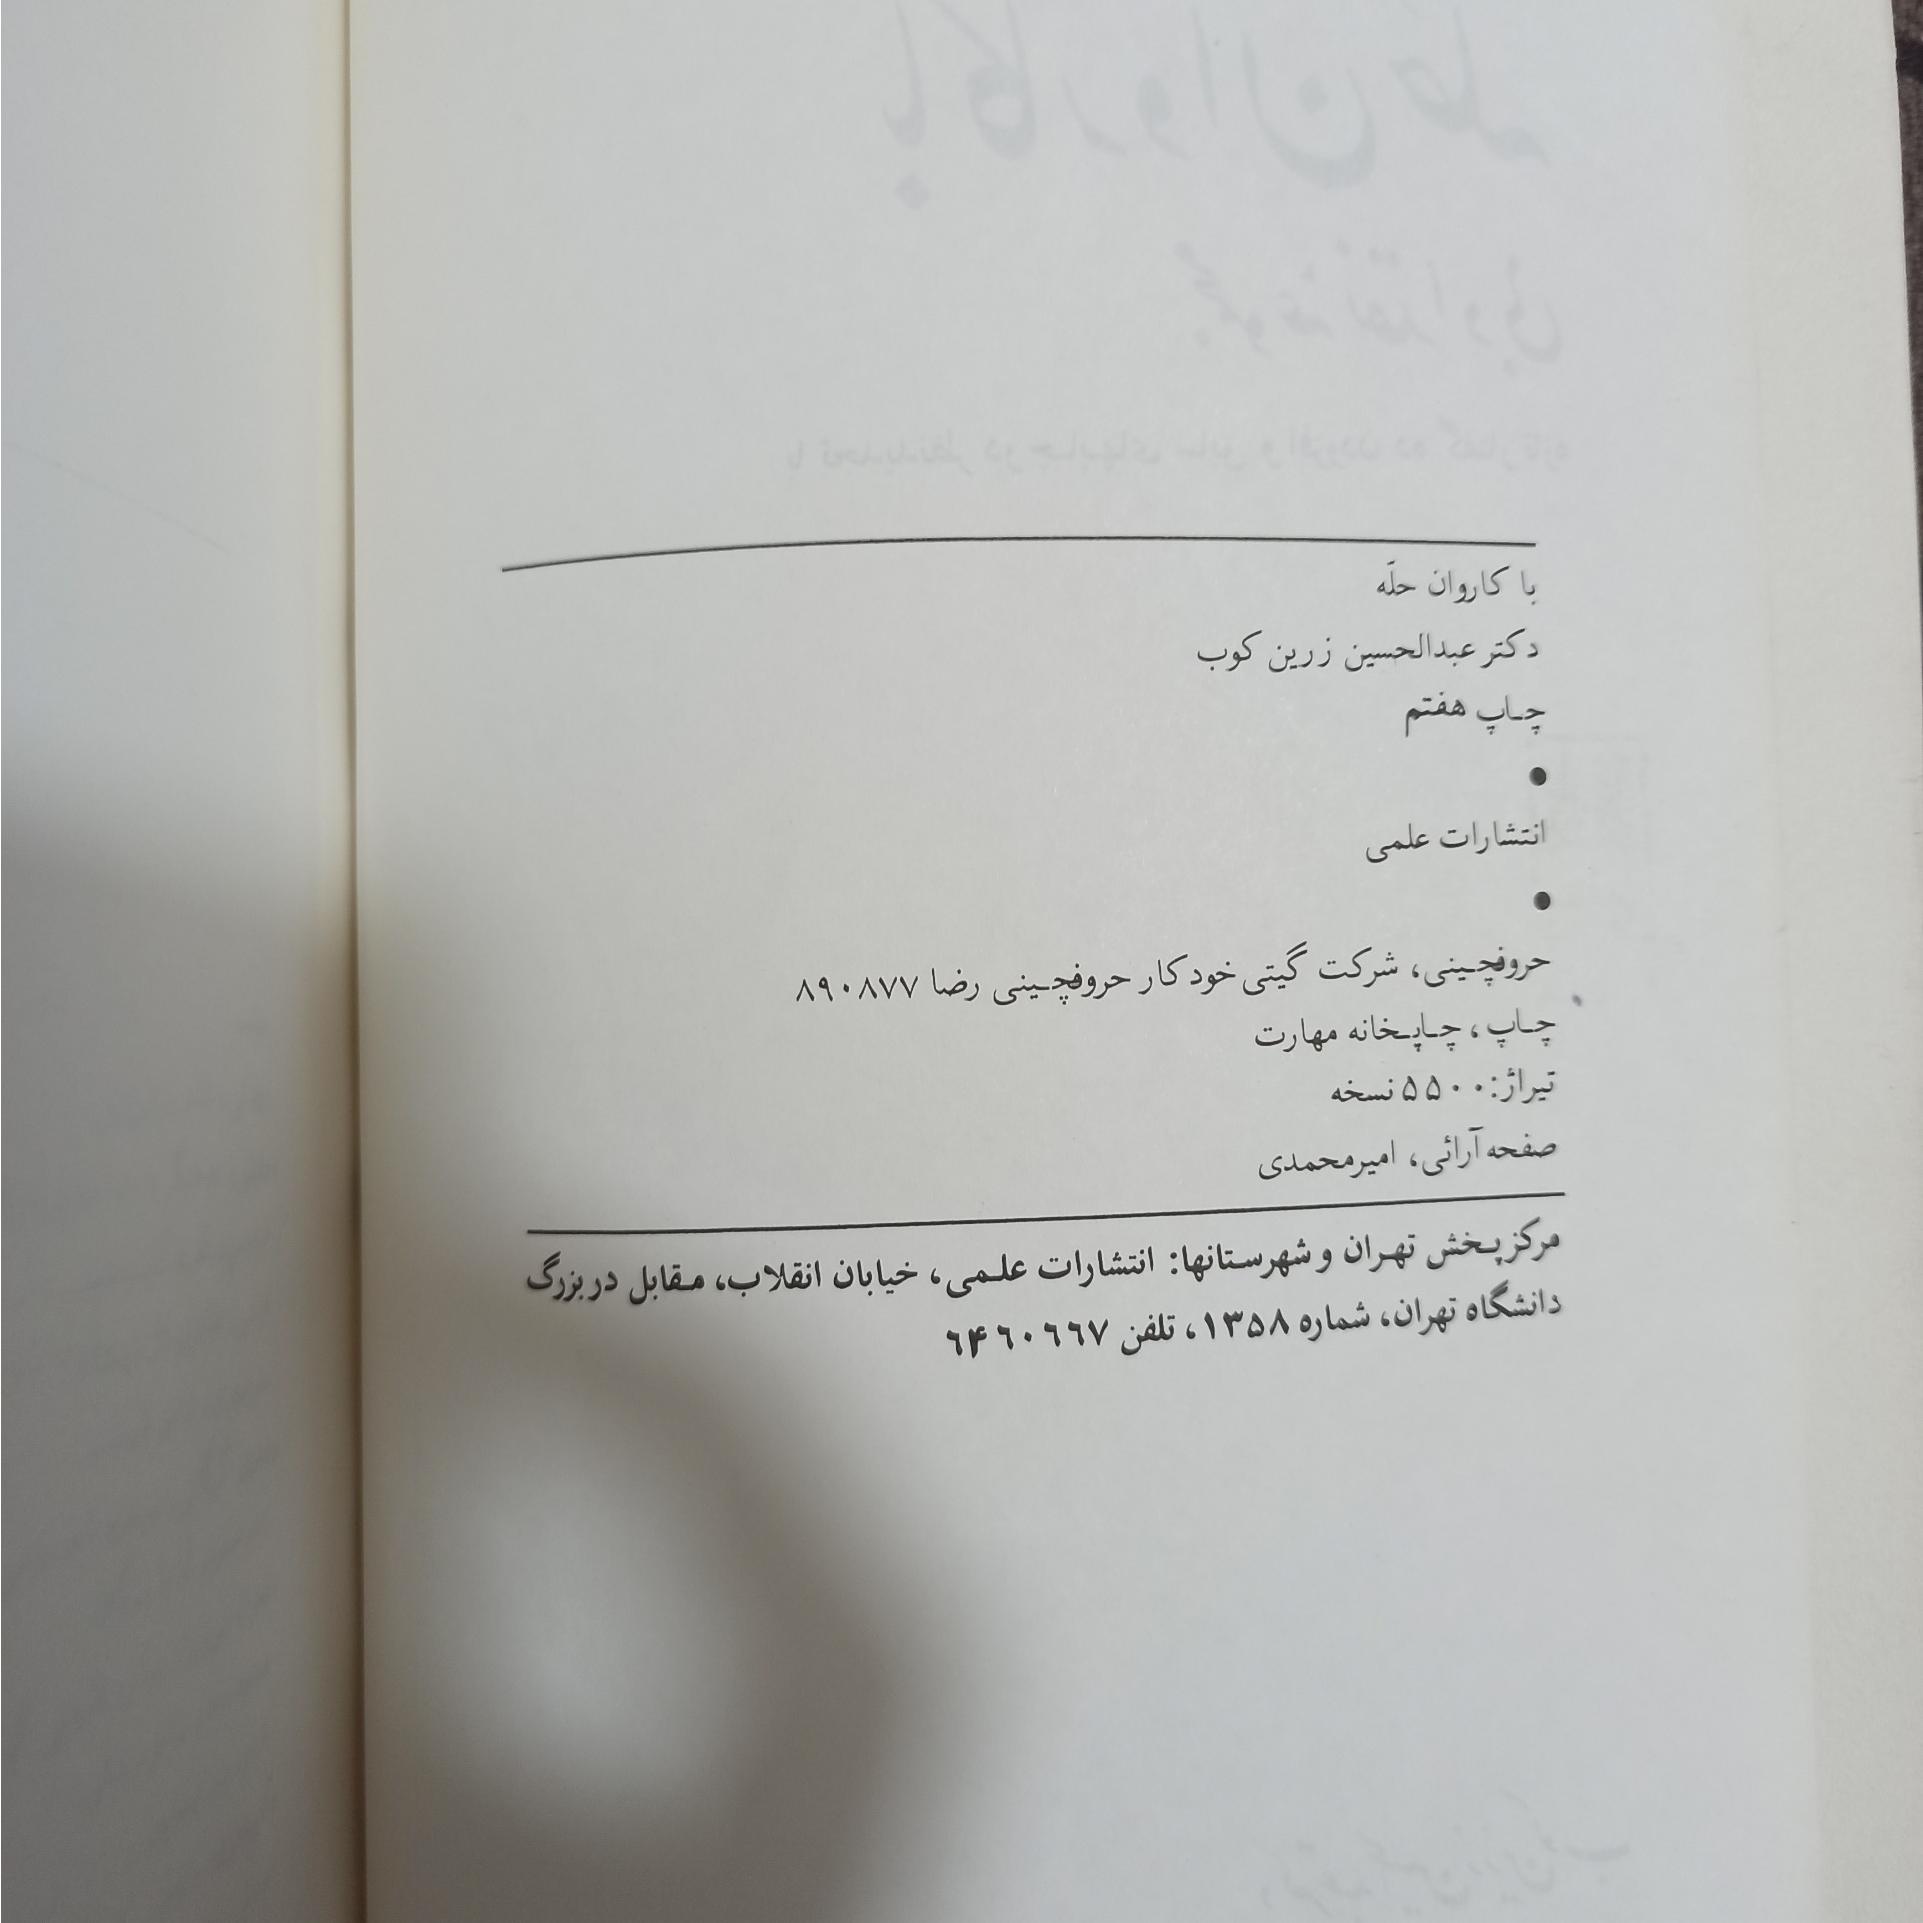 با کاروان حلّه
دکتر عبدالحسین زرین کوب
چاپ هفتم
●
انتشارات علمی
●
حروفچینی، شرکت گیتی خودکار حروفچینی رضا ۸۹۰۸۷۷
چاپ، چاپخانه مهارت
تیراژ: ۵۵۰۰ نسخه
صفحه‌آرائی، امیرمحمدی
مرکز پخش تهران و شهرستانها: انتشارات علمی، خیابان انقلاب، مقابل در بزرگ
دانشگاه تهران، شماره ۱۳۵۸، تلفن ۶۴۶۰۶۶۷